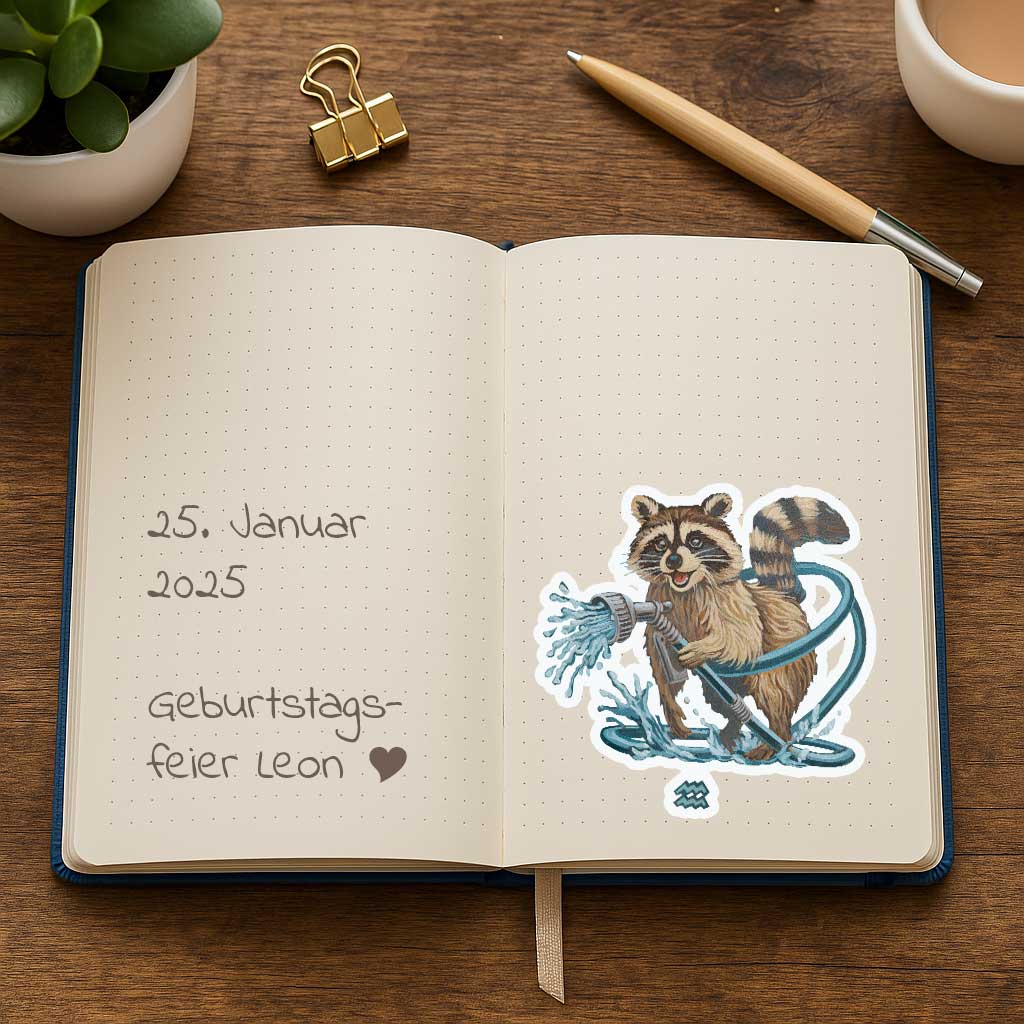 25. Januar
2025
Geburtstags-
feier Leon ♥